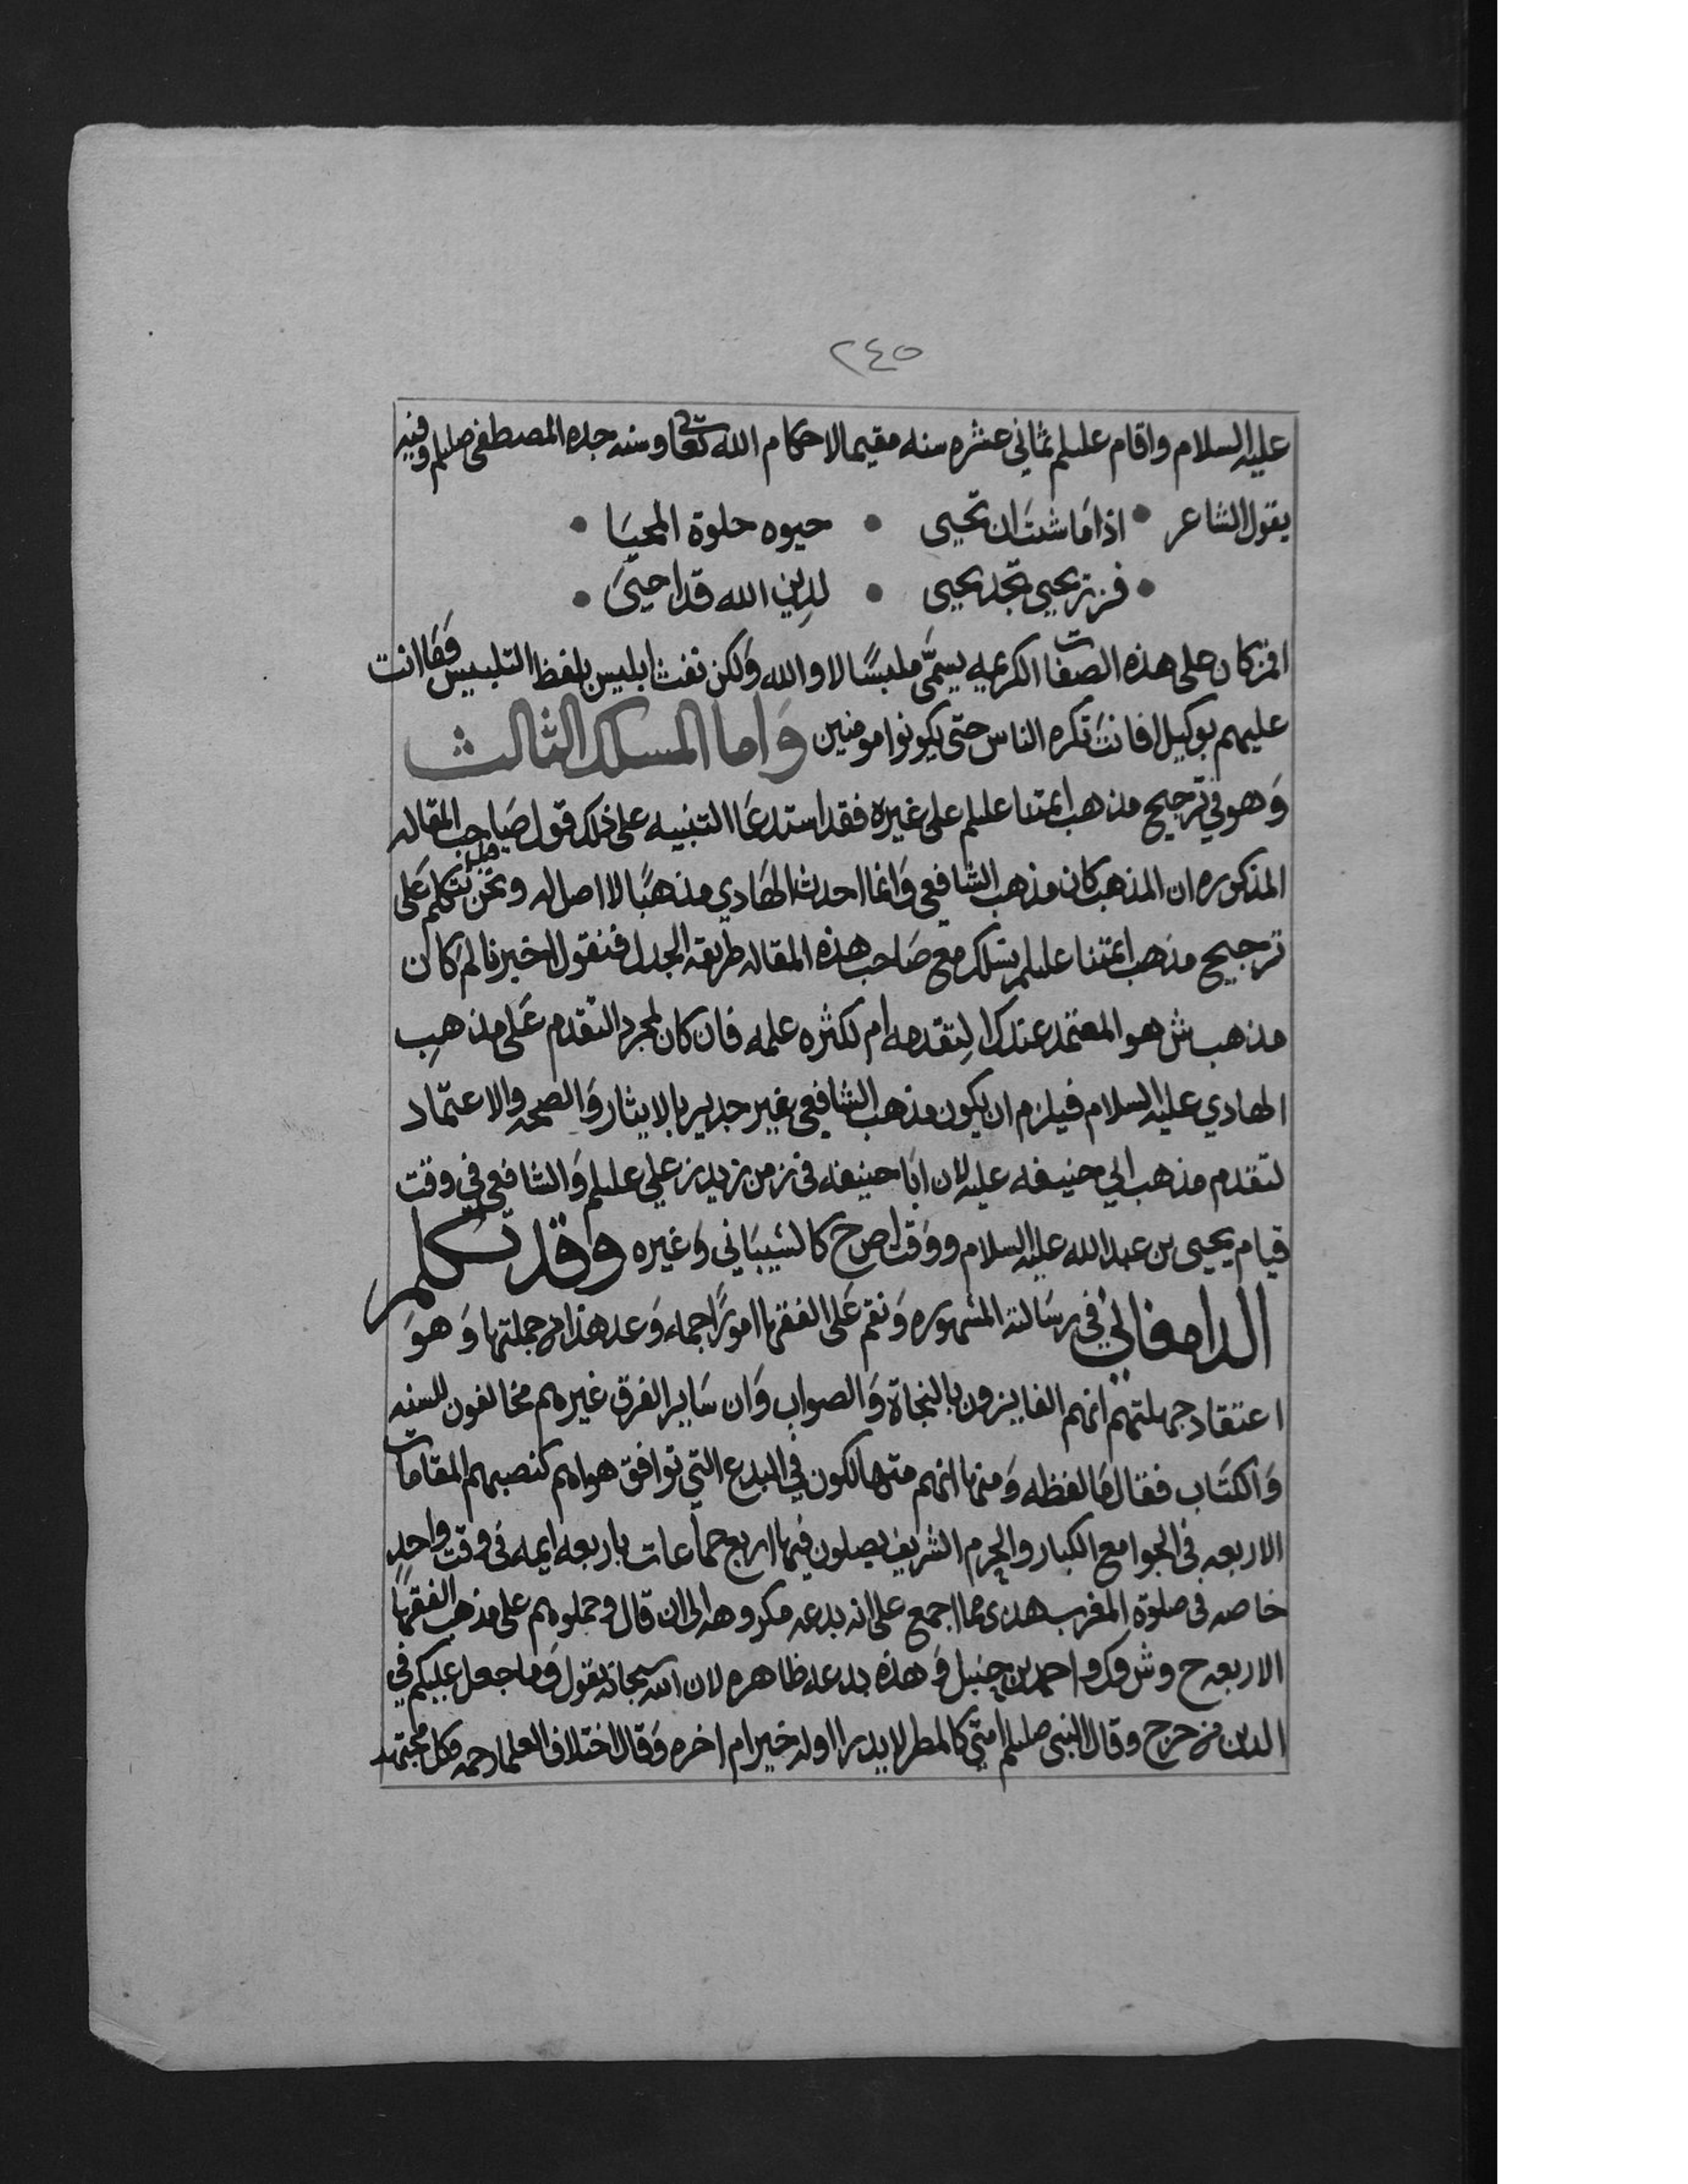 ٢٤٥
عليه السلام واقام عليلم ثماني عشره سنه مقيما لاحكام الله تعالى وسنه جده المصطفى صلعلم وفيه
يقول الشاعر • اذا ما شئت ان تحيى • حيوه حلوة المحيا •
• فزر يحيى تجد يحيى • لدين الله قد احيى •
افمن كان على هذه الصفات الكريمه يسمى ملبسا لا والله ولكن نفث ابليس بلفظ التلبيس فما انت
عليهم بوكيل افانت تكره الناس حتى يكونوا مومنين واما المسلك الثالث
وهو في ترجيح مذهب ائمتنا عليلم على غيره فقد استدعا التنبيه على ذلك قول صاحب المقاله
المذكوره ان المذهب كان مذهب الشافعي وانما احدث الهادي مذهبا لا اصل له ونحن نتكلم على
ترجيح مذهب ائمتنا عليلم بسلك مع صاحب هذه المقاله طريقه الجدل فنقول اخبرنا لم كان
مذهب ش هو المعتمد عندك التقدمه ام لكثره علمه فان كان لمجرد التقدم على مذهب
الهادي عليه السلام فيلزم ان يكون مذهب الشافعي بغير جدير بالايثار والصحه والاعتماد
لتقدم مذهب ابي حنيفه عليه لان ابا حنيفه في زمن زيد بن علي عليلم والشافعي في وقت
قيام يحيى بن عبد الله عليه السلام ووقت اصح كالشيباني وغيره وقد تكلم
الدامغاني في رسالته المشهوره ونقم على الفقها امورا جماء وعد هذا من جملتها وهو
اعتقاد جهلتهم انهم الفايزون بالنجاة والصواب وان ساير الفرق غيرهم مخالفون للسنه
والكتاب فقال ما لفظه ومنها انهم متهالكون في البدع التي توافق هواهم كنصبهم المقامات
الاربعه في الجوامع الكبار والحرم الشريف يصلون فيها اربع جماعات باربعه ايمه في وقت واحد
خاصه في صلوة المغرب هدى مما اجمع على انه بدعه مكروهه الى ان قال وحملوهم على مذهب الفقها
الاربعه ح وش وك واحمد بن حنبل وهذه بدعه ظاهره لان الله سبحانه يقول وما جعل عليكم في
الدين من حرج وقال النبي صلعلم امتي كالمطر لا يدرا اوله خير ام اخره وقال اختلاف العلما رحمه وكل مجتهد